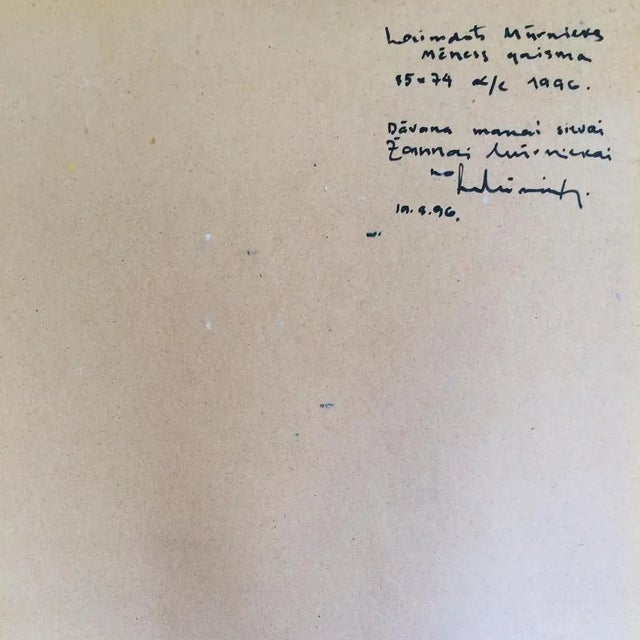 Laimdots Mūrnieks
Mēness gaisma
85×74 a/e 1996.
Dāvana manai sievai
Žannai Mūrniekai
no
19.9.96.